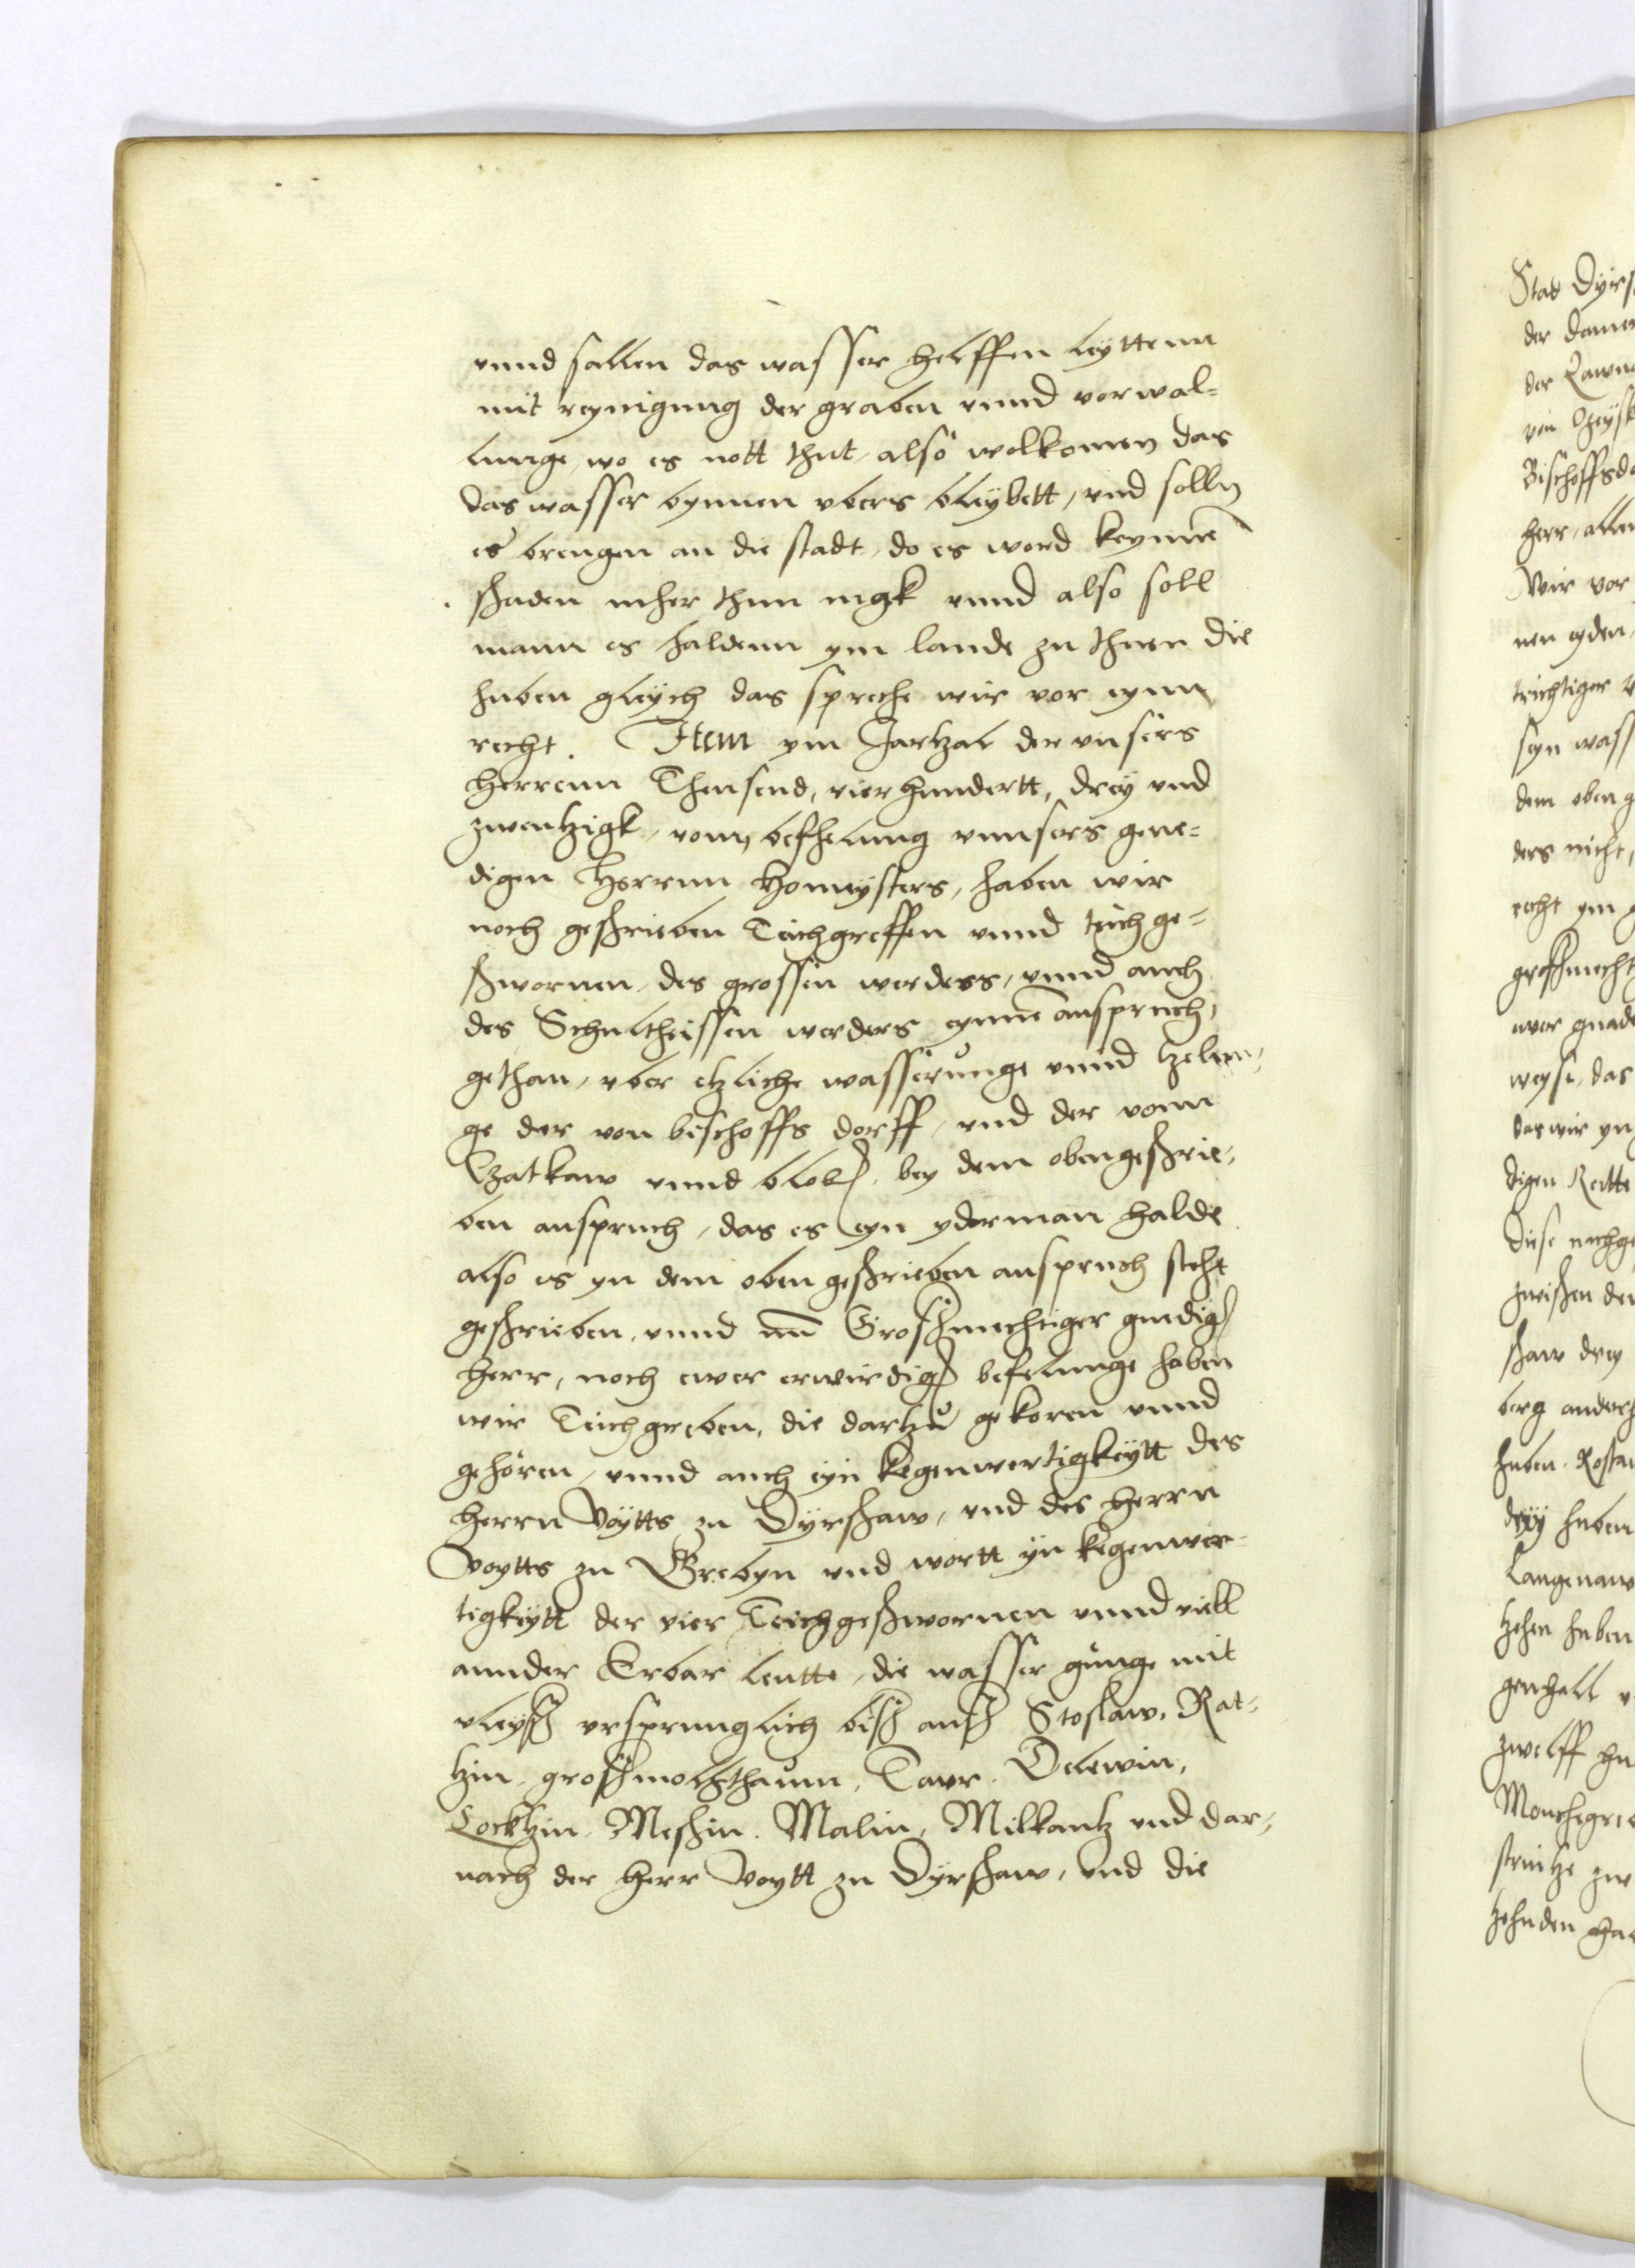 vnnd sallen das wasser helffen leyttenn
mit reynigung der graben vnnd vorwal-
lunge, wo es nott thut, also wolkomen das
das wasser bynnen vbers bleybett, vnd solln
es brengen an die stadt, do es word keynne
schaden mher thun mgk vnnd also soll
mann es haldenn ym lande zu thuen die
huben gleych das spreche wir vor eynn
recht. Item ym Jartzal der vnsers
Herrenn Theusend, vierhundertt, drey vnd
zwentzigk, vonn befhelung vnnsers gene-
digen Herrnn Homeysters, haben wir
noch geschrieben Teichgreffen vnnd teichge-
schwornen, des grossen werders, vnnd auch
des Schultheissen werders eynne anspruch,
gethan, vber etzliche wasserunge vnnd
ge der von bischoffs dorff, vnd der vonn
Czatkaw vnnd bey dem obengeschrie-
ben anspruch, das es eyn yderman halde
also es yn dem oben geschrieben anspruch steht
geschrieben, vnnd nu Groschmechtiger gnedig
herr, noch ewer erwirdig befelunge haben
wir Teichgreben, die dartzu gekoren vnnd
gehören, vnnd auch eyn kegenwertigkeytt des
herrn Voytts zu Dyrschaw, vnd des herrn
Voytts zu Grebyn vnd wortt yn kegenwer-
tigkeytt der vier Teichgeschwornen vnnd viell
annder Erbar leutte, die wasser gunge mit
vleysch vrsprunglich bisch ausch Stoslaw, Rat-
tzin, groschmolsthaum, Taur. Delewin,
Locktzin. Meschin. Malin, Milkantz vnd dar-
nach der herr Voytt zu Dyrschaw, vnd die
Stad
der
der
Bischoffsdo
herr, allen
Wir vor
nen eyden
trichtiger
seyn wass
dem oben g
ders nicht,
recht ym
groschmecht
ewer gnade
weyse, das
das wir yn
digen Rette
Diese nochge
zwischen den
schaw drey
berg anderh
huben.
drey huben
Langenaw
tzehen huben
zwelff hu
Monchegre